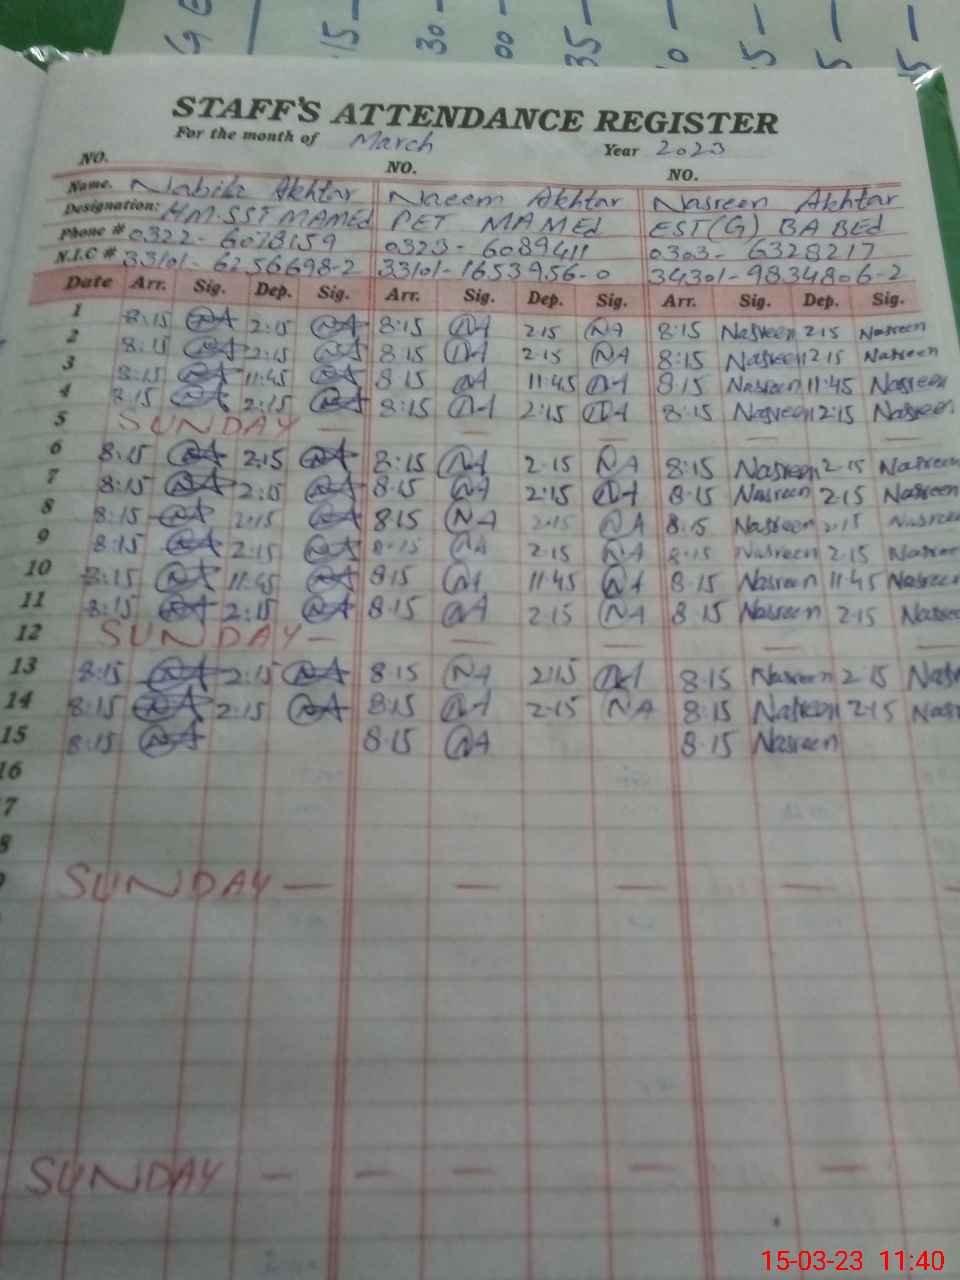 15 - 30 - 00 - 35 -
STAFF'S ATTENDANCE REGISTER
For the month of March Year 2023
NO. NO. NO.
Name. Nabila Akhtar Naeem Akhtar Nasreen Akhtar
Designation: HM.SST MAMEd PET MAMEd EST(G) BA BEd
Phone # 0322-6078159 0323-6089411 0303-6328217
N.I.C # 33101-6256698-2 33101-1653956-0 34301-9834806-2
Date Arr. Sig. Dep. Sig. Arr. Sig. Dep. Sig. Arr. Sig. Dep. Sig.
1 8:15 NA 2:15 NA 8:15 NA 2:15 NA 8:15 Nasreen 2:15 Nasreen
2 8:15 NA 2:15 NA 8:15 NA 2:15 NA 8:15 Nasreen 2:15 Nasreen
3 8:15 NA 11:45 NA 8:15 NA 11:45 NA 8:15 Nasreen 11:45 Nasreen
4 8:15 NA 2:15 NA 8:15 NA 2:15 NA 8:15 Nasreen 2:15 Nasreen
5 SUNDAY - - - - -
6 8:15 NA 2:15 NA 8:15 NA 2:15 NA 8:15 Nasreen 2:15 Nasreen
7 8:15 NA 2:15 NA 8:15 NA 2:15 NA 8:15 Nasreen 2:15 Nasreen
8 8:15 NA 2:15 NA 8:15 NA 2:15 NA 8:15 Nasreen 2:15 Nasreen
9 8:15 NA 2:15 NA 8:15 NA 2:15 NA 8:15 Nasreen 2:15 Nasreen
10 8:15 NA 11:45 NA 8:15 NA 11:45 NA 8:15 Nasreen 11:45 Nasreen
11 8:15 NA 2:15 NA 8:15 NA 2:15 NA 8:15 Nasreen 2:15 Nasree
12 SUNDAY - - - - -
13 8:15 NA 2:15 NA 8:15 NA 2:15 NA 8:15 Nasreen 2:15 Nasr
14 8:15 NA 2:15 NA 8:15 NA 2:15 NA 8:15 Nasreen 2:15 Nasr
15 8:15 NA 8:15 NA 8:15 Nasreen
16
7
8
SUNDAY - - - - -
SUNDAY - - - - -
15-03-23 11:40